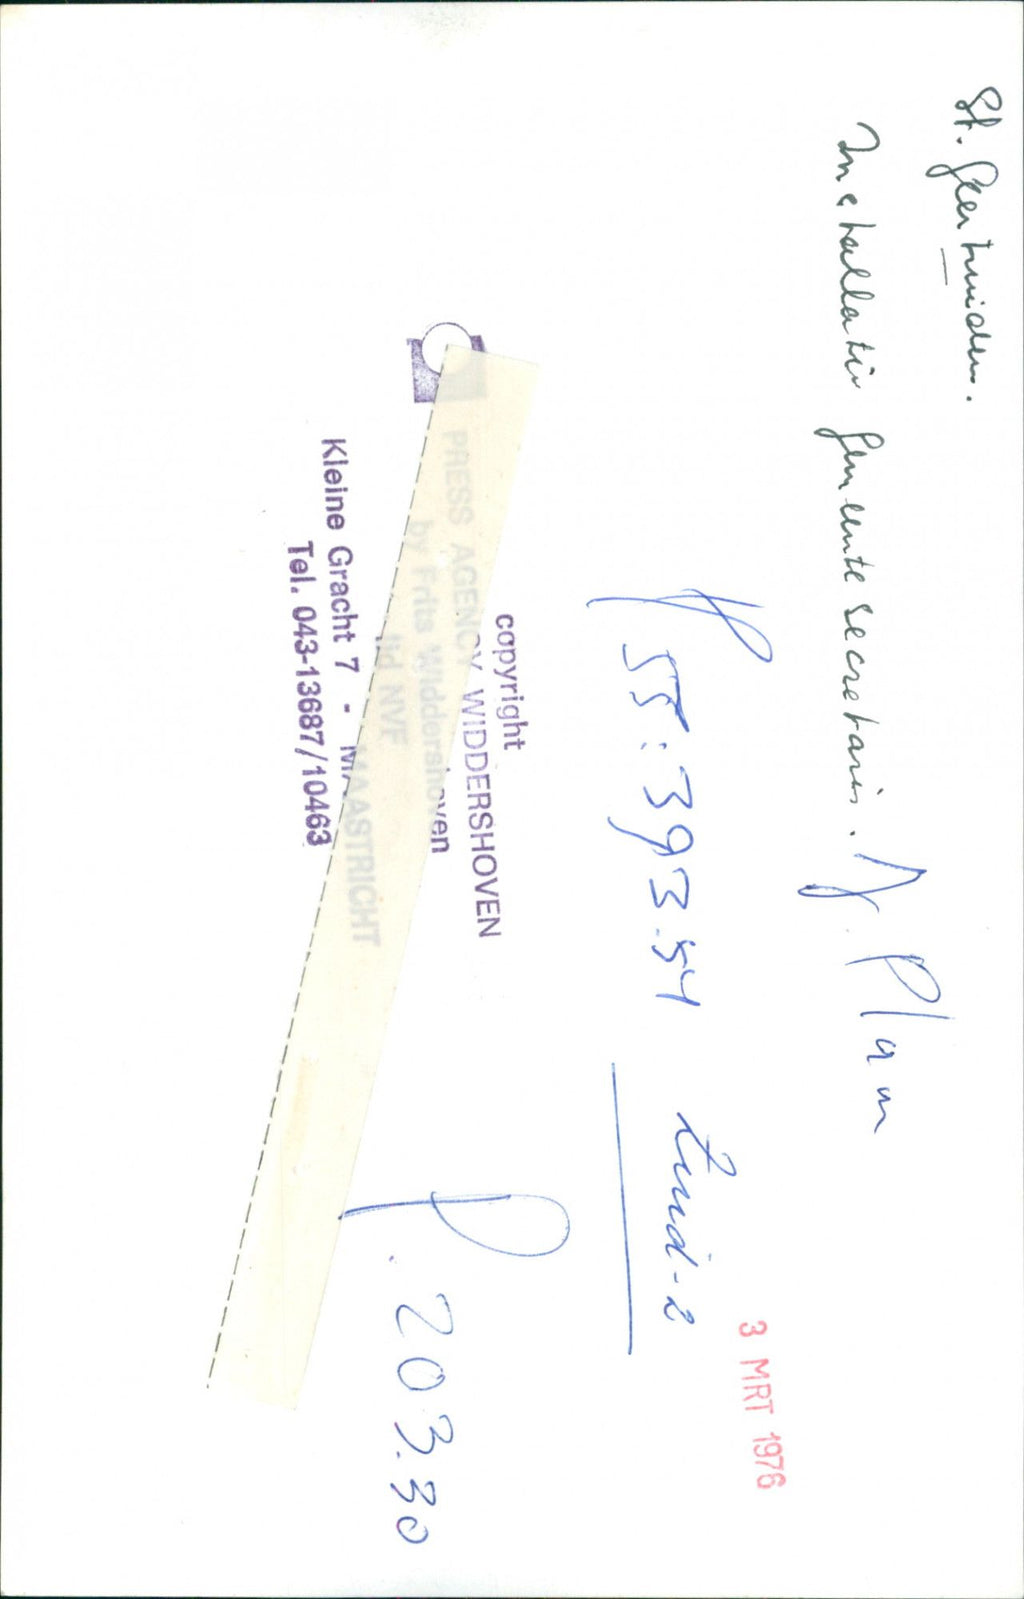 St. Geertruiden.
Installatie Gemeente secretaris. Dr. Plum
P 55:393.54 Zuid-2
3 MRT 1976
copyright
PRESS AGENCY WIDDERSHOVEN
by Frits Widdershoven
lid NVF
Kleine Gracht 7 - MAASTRICHT
Tel. 043-13687/10463
P. 203.30